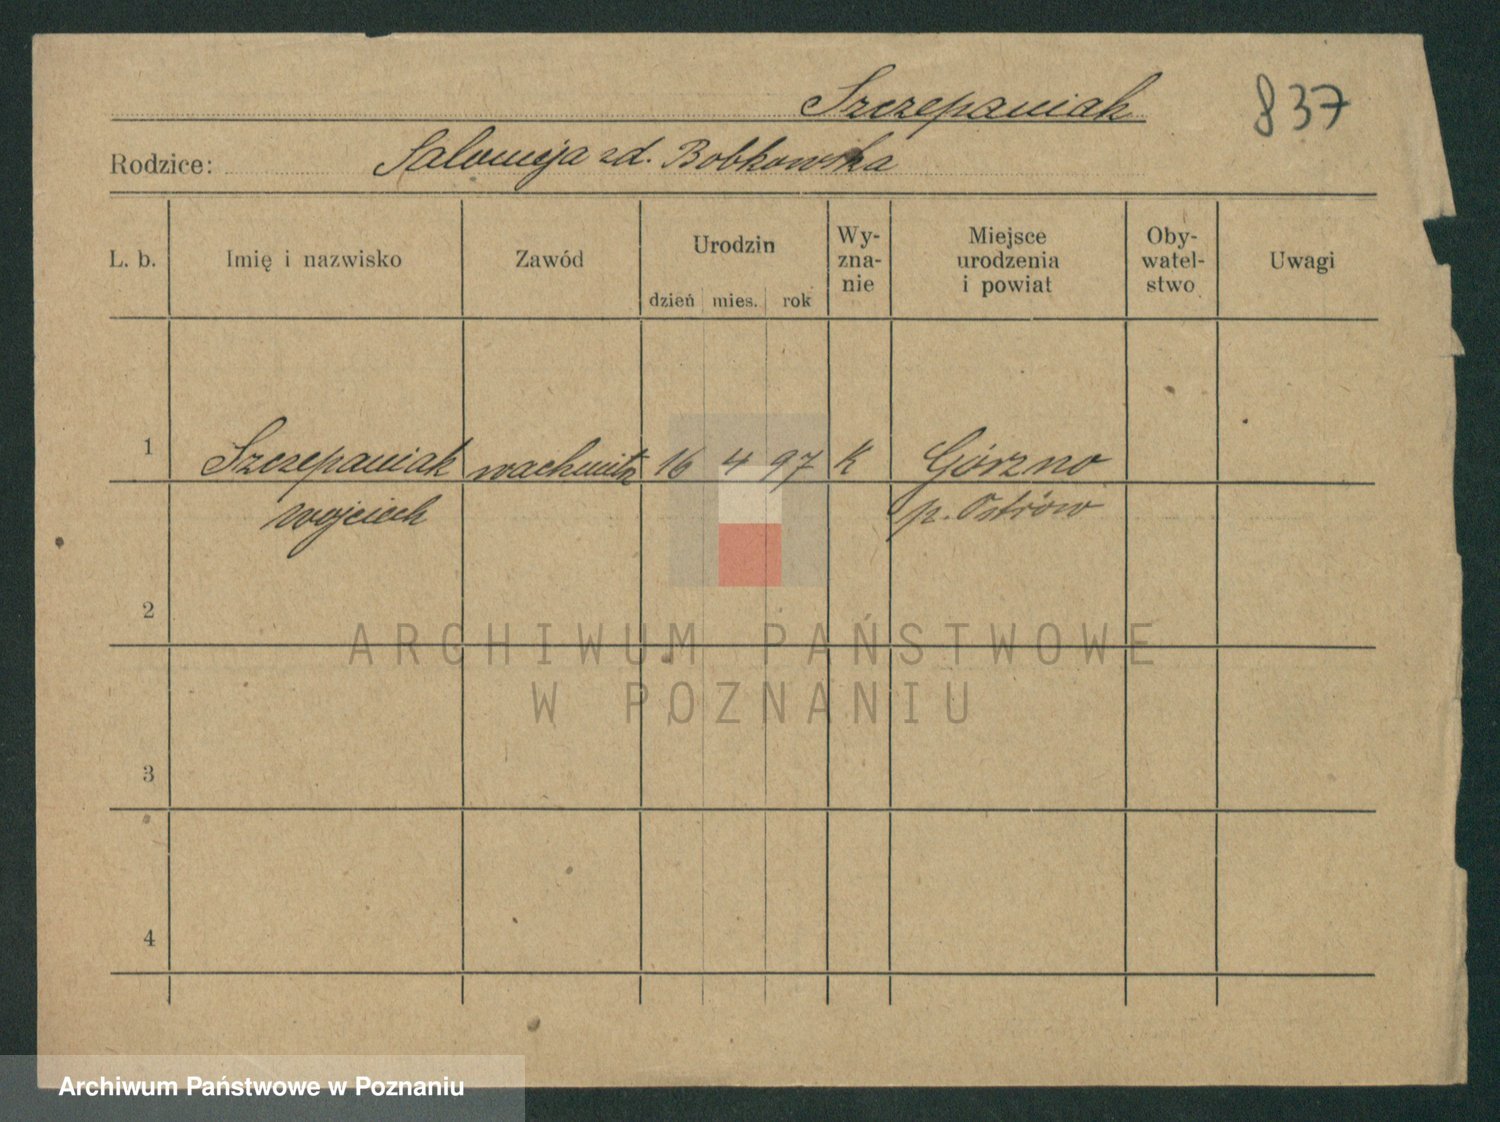 Szczepaniak
837
Rodzice: Salomeja zd. Bobkowska
L. b.
Imię i nazwisko
Zawód
Urodzin
dzień mies. rok
Wy-
zna-
nie
Miejsce
urodzenia
i powiat
Oby-
watel-
stwo
Uwagi
1 Szczepaniak wachmitz 16 4 97 k Górzno
Wojciech p. Ostrów
2
ARCHIWUM PAŃSTWOWE
W POZNANIU
3
4
Archiwum Państwowe w Poznaniu